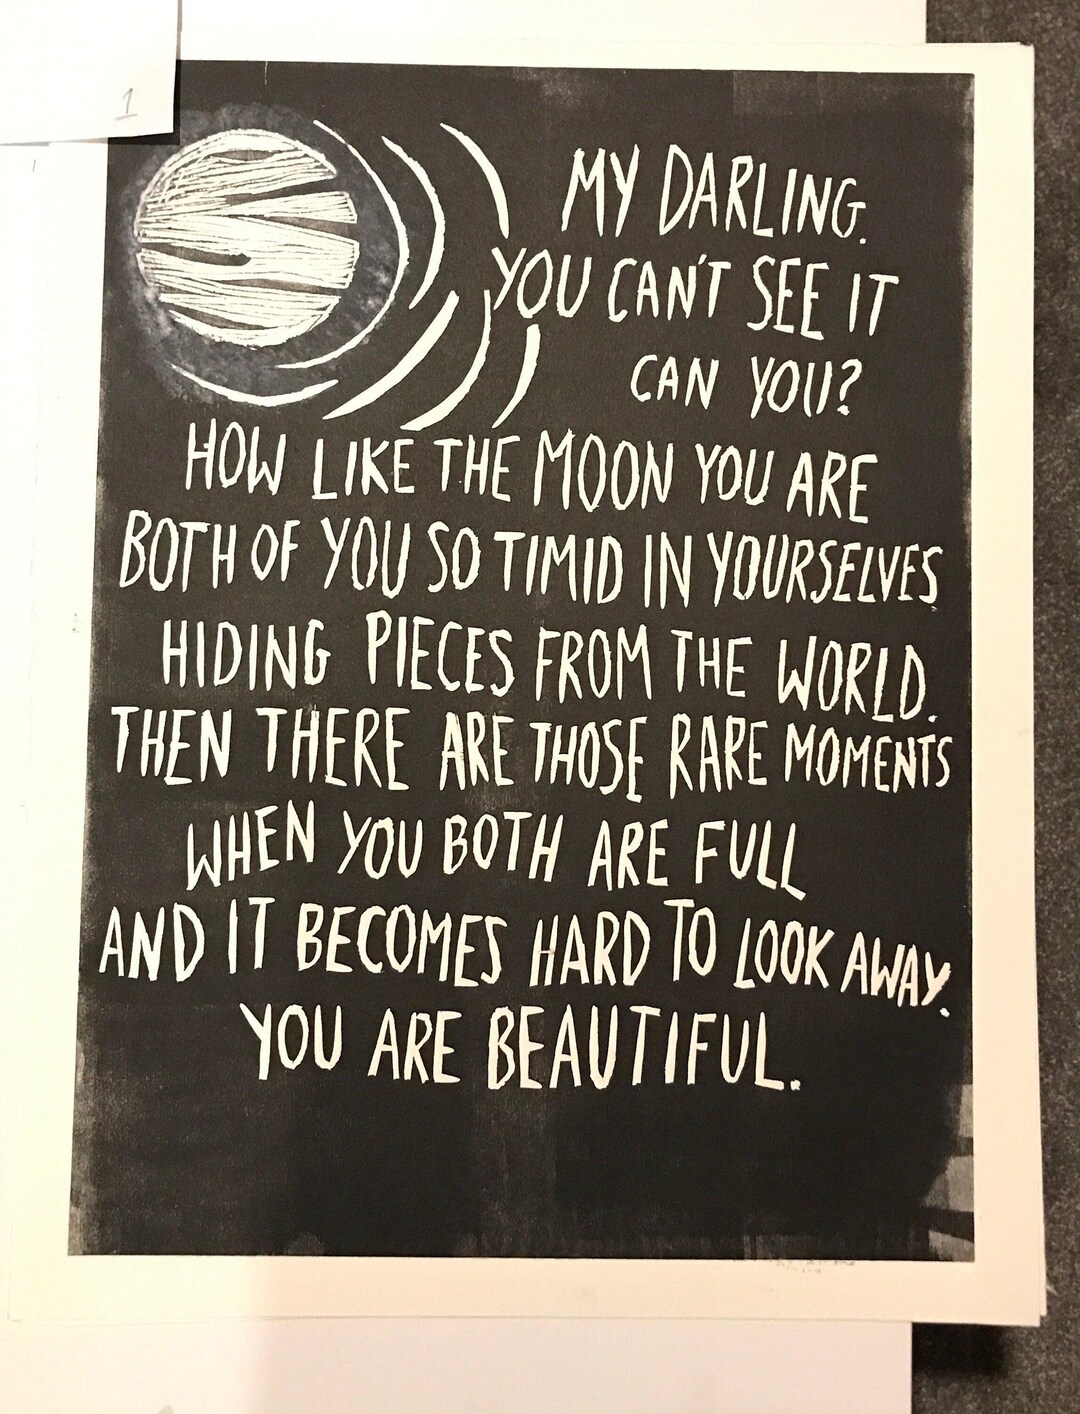 1
MY DARLING.
YOU CAN'T SEE IT
CAN YOU?
HOW LIKE THE MOON YOU ARE
BOTH OF YOU SO TIMID IN YOURSELVES
HIDING PIECES FROM THE WORLD.
THEN THERE ARE THOSE RARE MOMENTS
WHEN YOU BOTH ARE FULL
AND IT BECOMES HARD TO LOOK AWAY.
YOU ARE BEAUTIFUL.